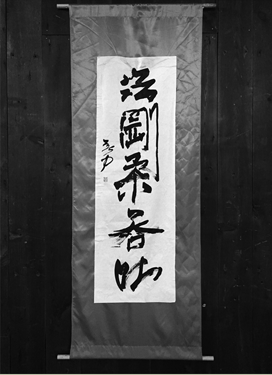 法剛柔吞吐